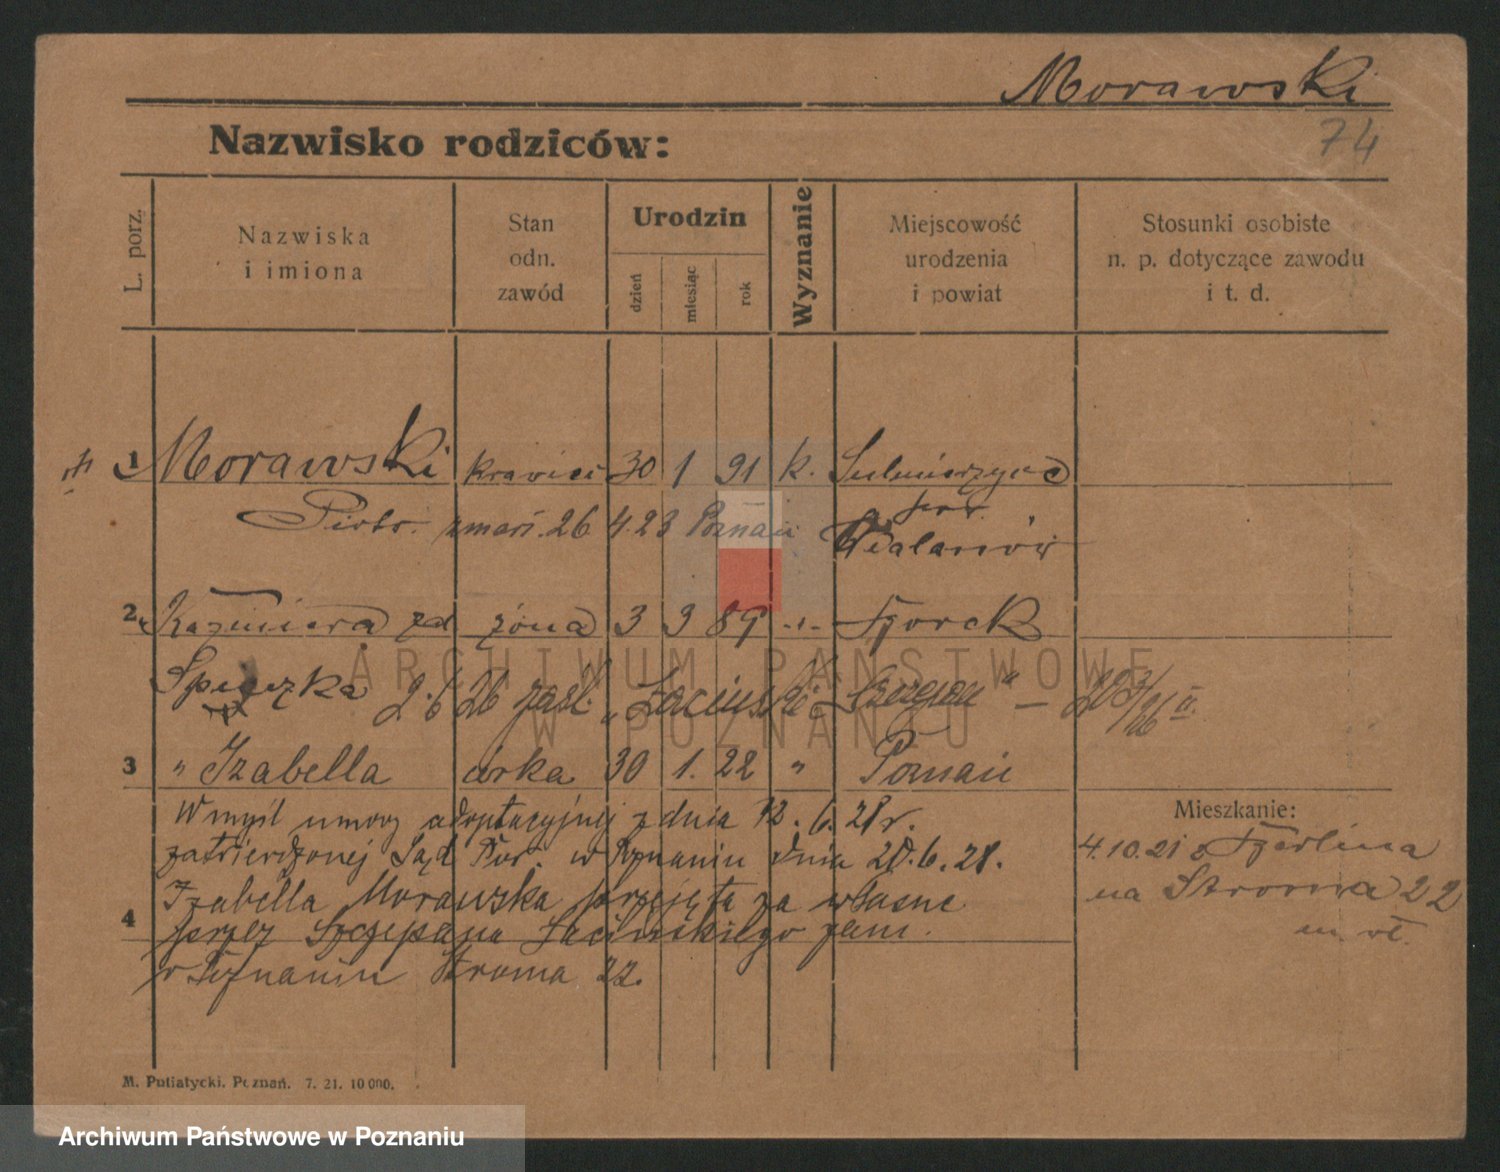 Morawski
74
Nazwisko rodziców:
L. porz.
Nazwiska
i imiona
Stan
odn.
zawód
Urodzin
dzień
miesiąc
rok
Wyznanie
Miejscowość
urodzenia
i powiat
Stosunki osobiste
n. p. dotyczące zawodu
i t. d.
1 Morawski krawiec 30 1 91 k. Sulmierzyce
Piotr. zmarł. 26 4. 23 Poznań pow.
Odalanów
2 Kazimiera zd żona 3 3 89 -"-
Speczka 2. 6 26 zaśl. "Łaciński Szczepan" —
3 " Izabella córka 30 1. 22 " Poznań
Mieszkanie:
W myśl umowy adoptacyjnej z dnia 12. 6. 28 r.
zatwierdzonej Sąd Pow. w Poznaniu dnia 20. 6. 28.
4.10.21 z
Izabella Morawska przyjęta za własne
na Stroma 22
4
przez Szczepana Łacińskiego zam.
w Poznaniu Stroma 22.
M. Putiatycki, Poznań. 7. 21. 10 000.
ARCHIWUM PAŃSTWOWE
W POZNANIU
Archiwum Państwowe w Poznaniu